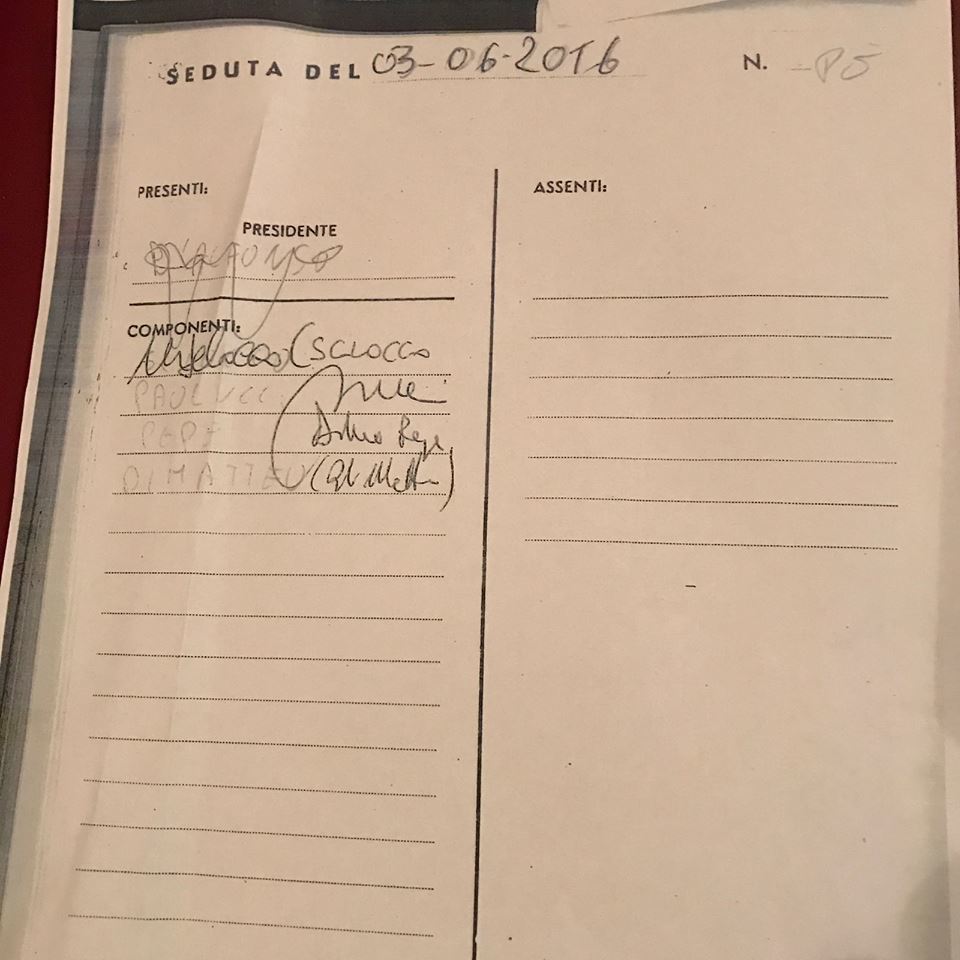 SEDUTA DEL 03-06-2016 N.
PRESENTI:
PRESIDENTE
D'ALFONSO
COMPONENTI:
(SCLOCCO
PAOLUCCI
PEPE
DI MATTEO
ASSENTI: